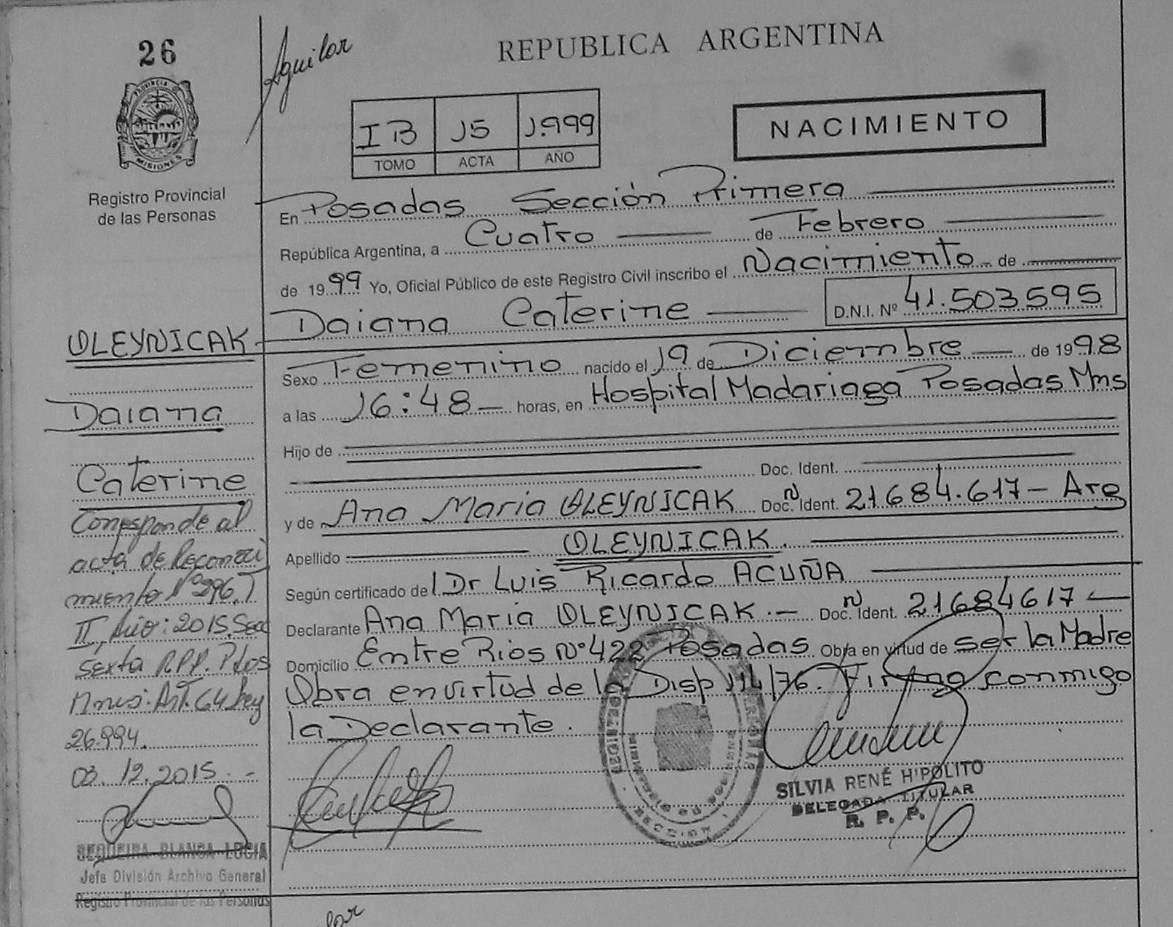 26
Aguilar
REPUBLICA ARGENTINA
PROVINCIA DE MISIONES
IB 15 1.999
TOMO ACTA AÑO
NACIMIENTO
Registro Provincial
de las Personas
En Posadas Sección Primera
República Argentina, a Cuatro de Febrero
de 1999 Yo, Oficial Público de este Registro Civil inscribo el Nacimiento de
Daiana Caterine D.N.I. Nº 41.503.595
Sexo Femenino nacido el 19 de Diciembre de 1998
a las 16:48 horas, en Hospital Madariaga Posadas Mns
Hijo de
Doc. Ident.
y de Ana Maria OLEYNICAK Doc. N Ident. 21684.617 - Arg
Apellido OLEYNICAK.
Según certificado de l Dr Luis Ricardo ACUÑA
Declarante Ana Maria OLEYNICAK.- Doc. N Ident. 21684617
Domicilio Entre Rios Nº 422 Posadas. Obra en virtud de ser la Madre
Obra en virtud de la Disp 114/76. Firma conmigo
la Declarante.
OLEYNICAK
Daiana
Caterine
Corresponde al
acta de Reconoci
miento Nº 396, T
II, Año: 2015, Secc
sexta R.P.P. Pdas
Mnes. Art. 64 Ley
26.994.
03.12.2015.-
SEQUEIRA BLANCA LUCIA
Jefa División Archivo General
Registro Provincial de las Personas
SILVIA RENÉ HIPOLITO
DELEGADA TITULAR
R. P. P.